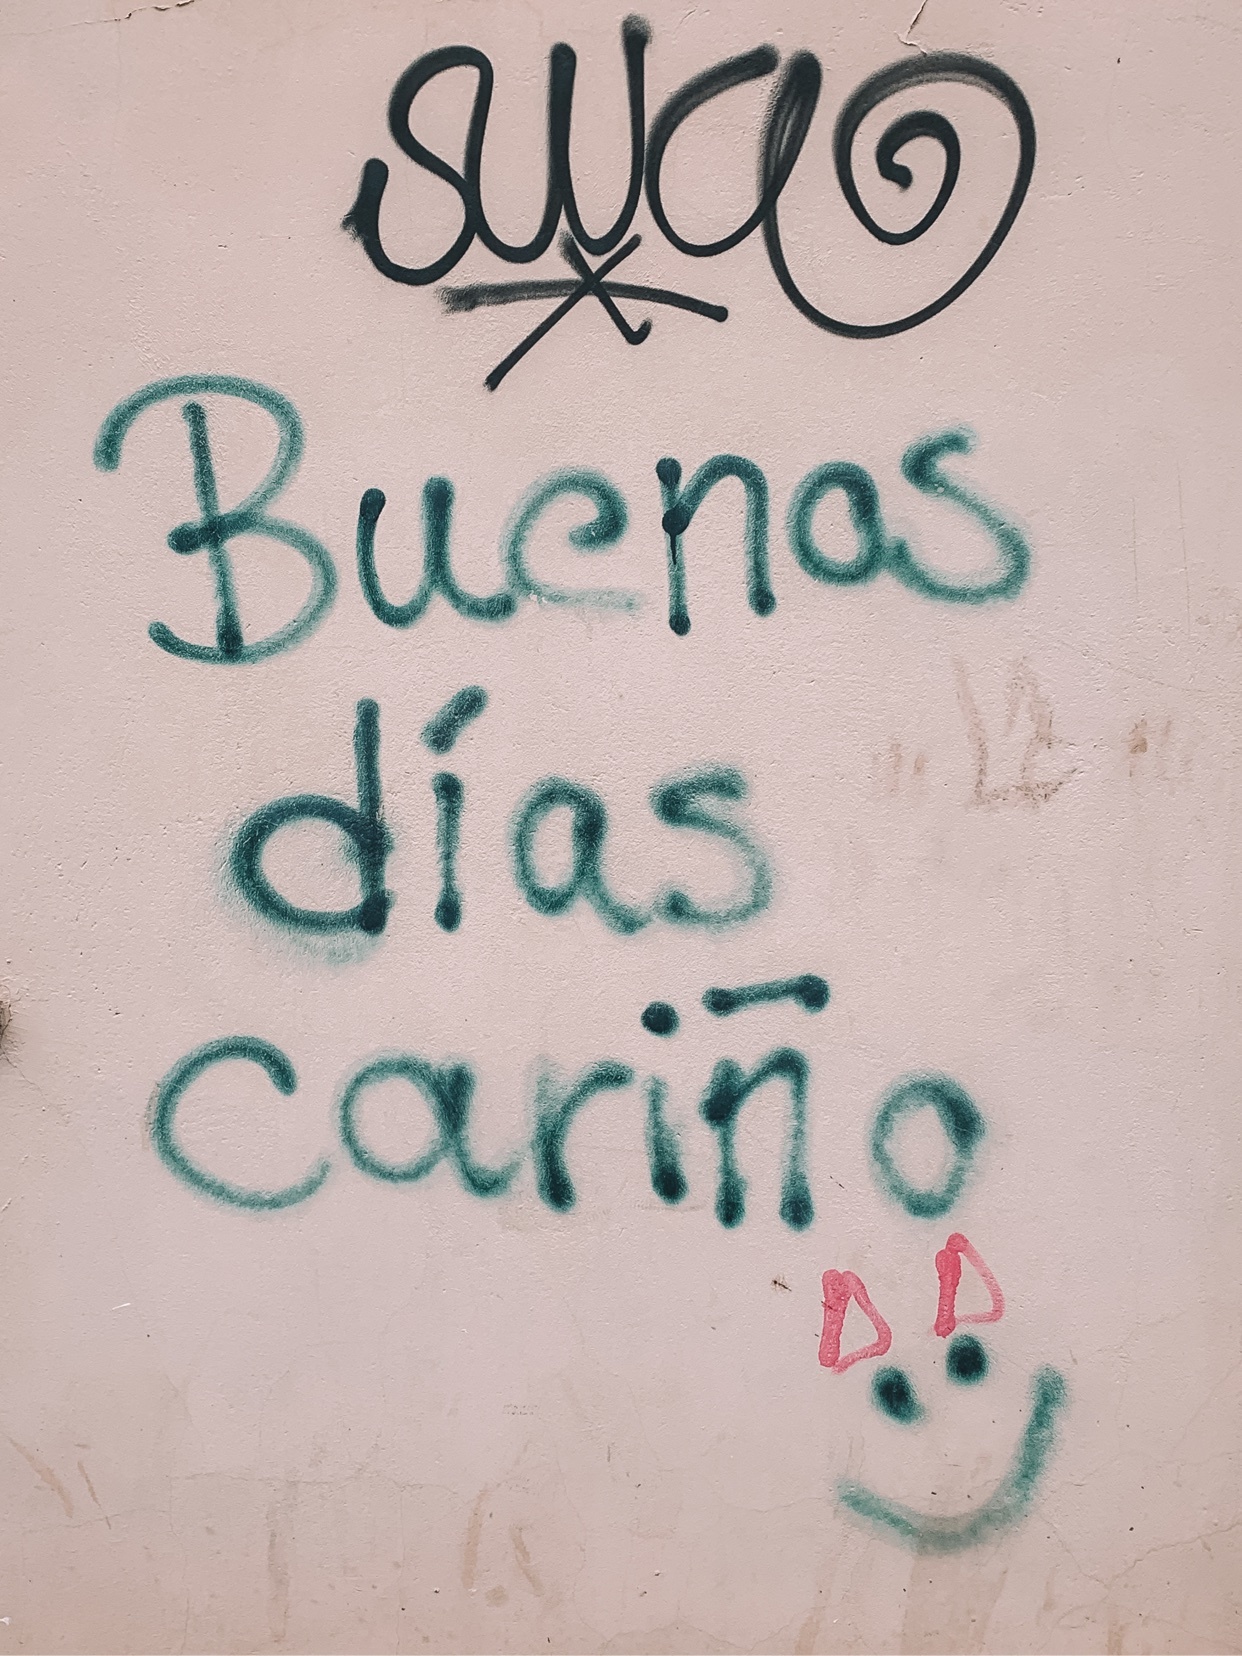 Buenos
días
cariño